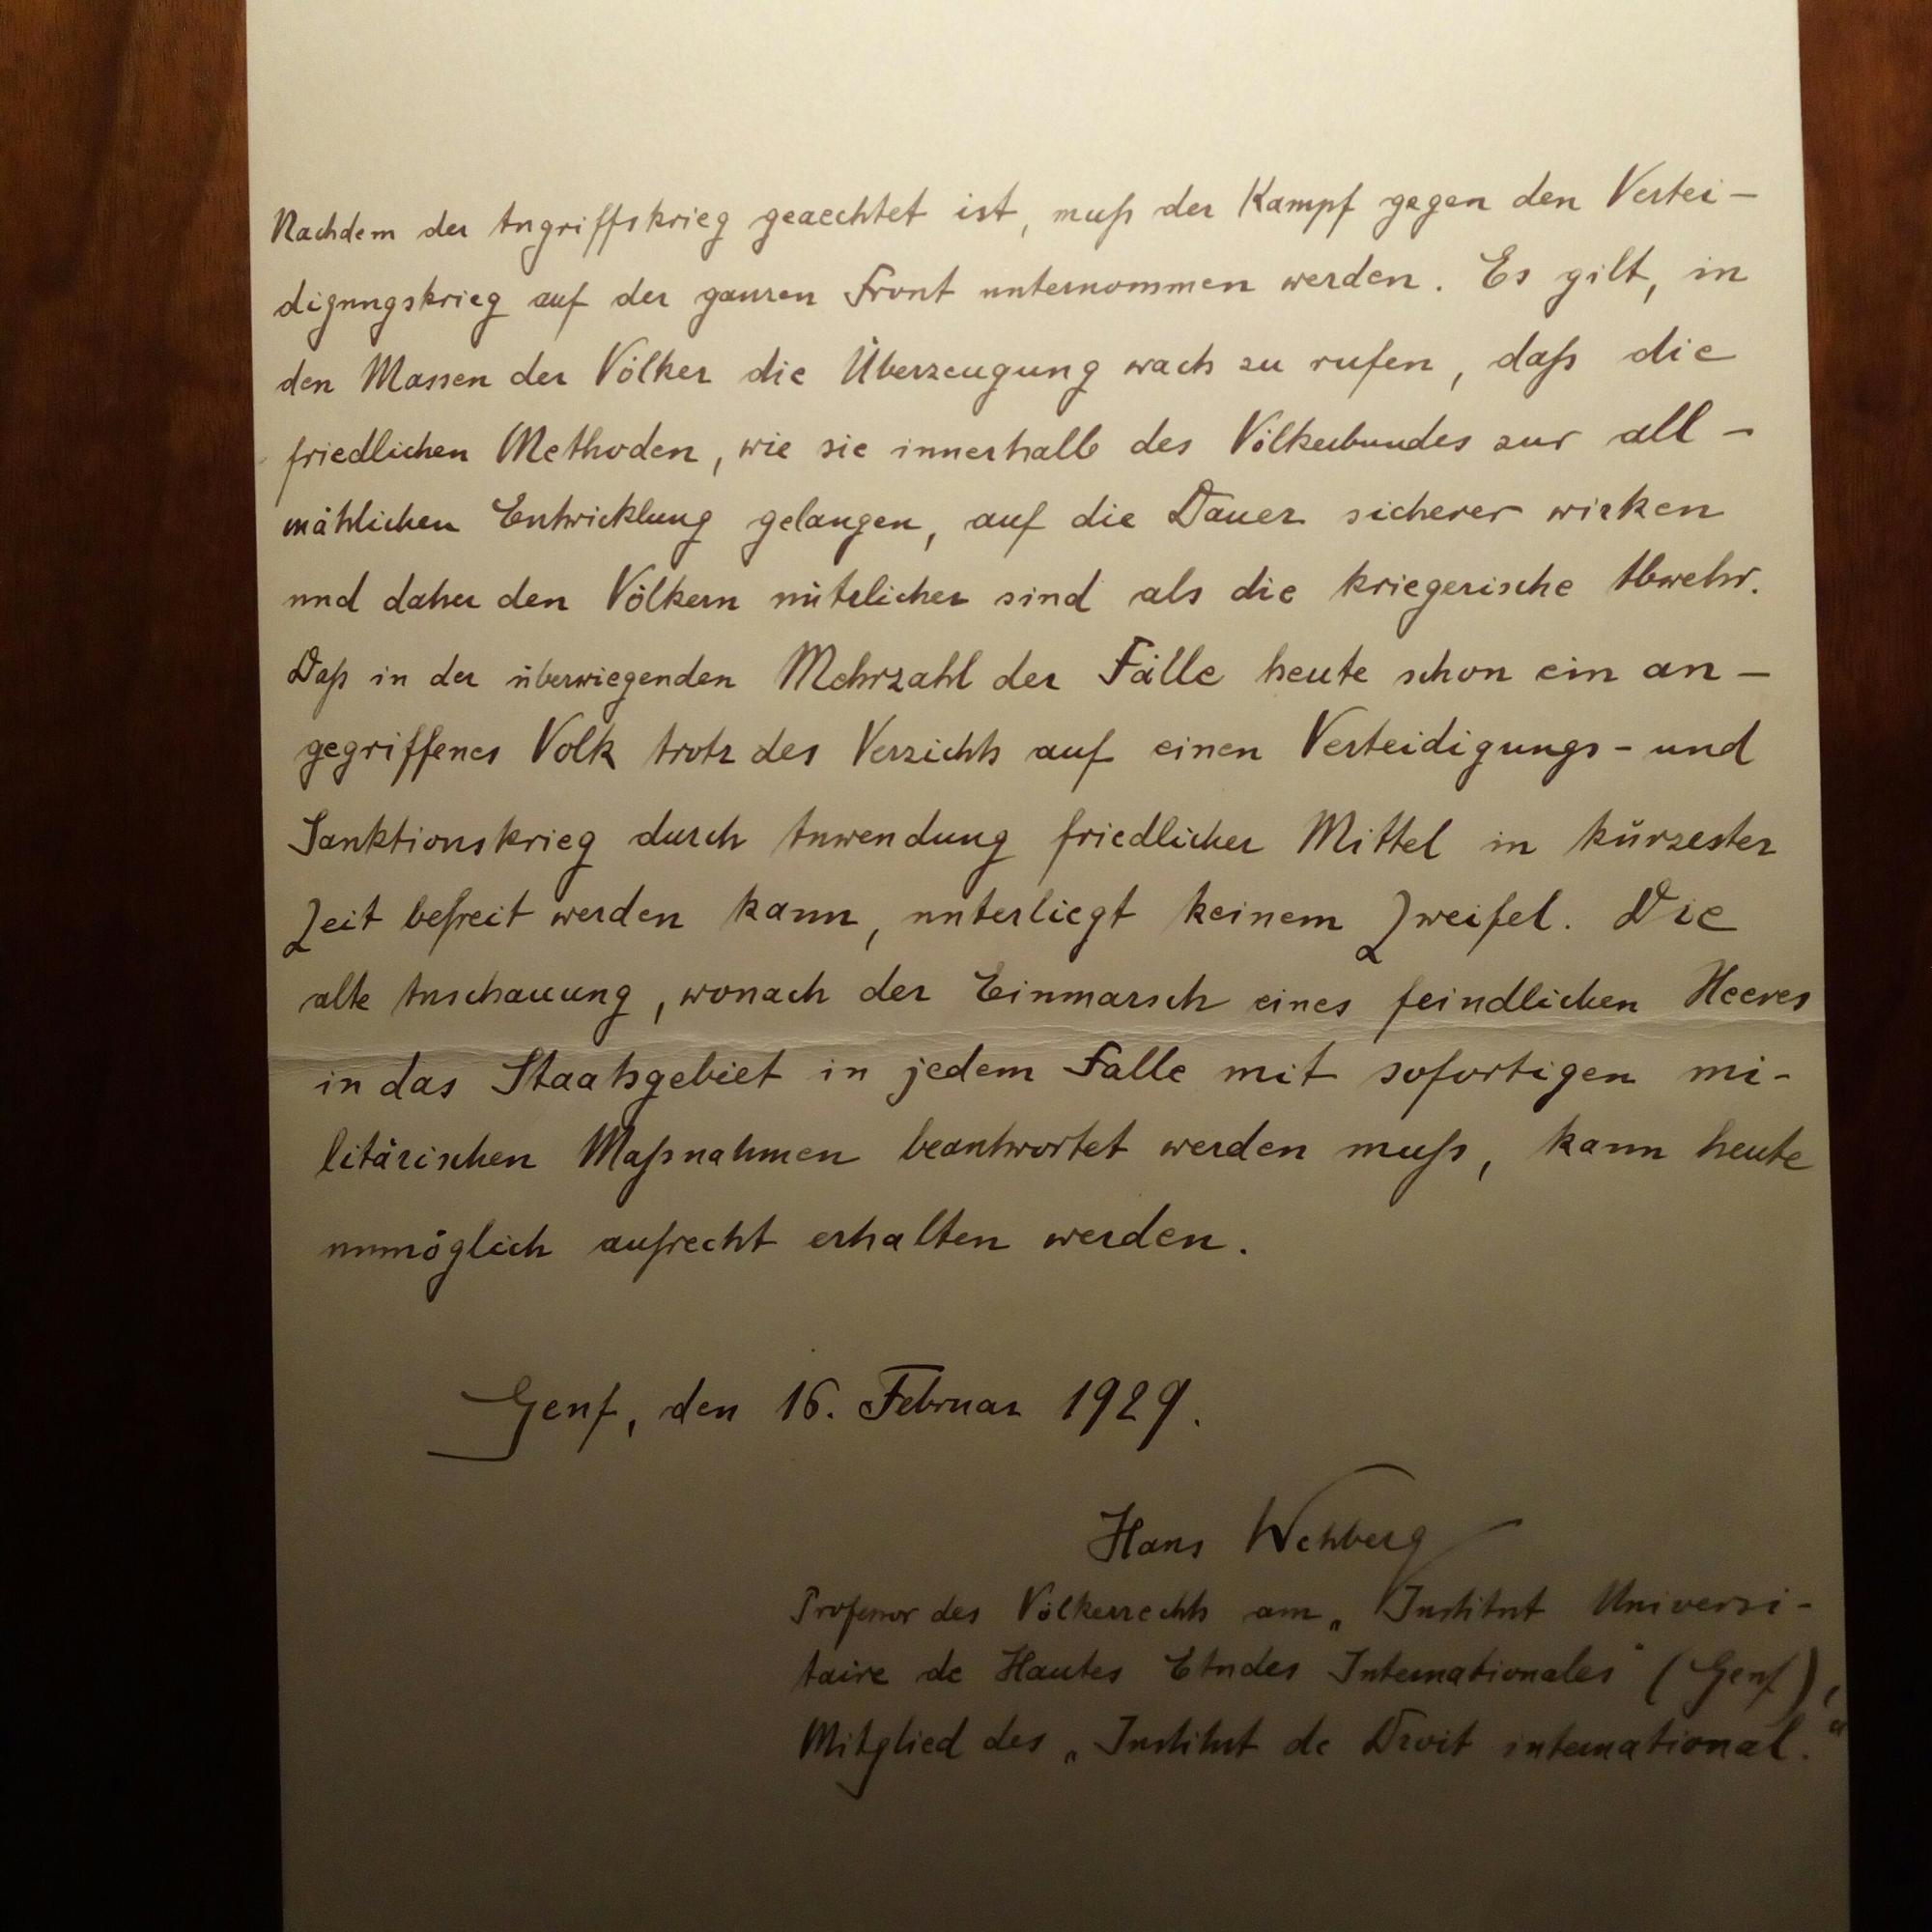 Nachdem der Angriffskrieg geaechtet ist, muß der Kampf gegen den Vertei-
digungskrieg auf der ganzen Front unternommen werden. Es gilt, in
den Massen der Völker die Überzeugung wach zu rufen, daß die
friedlichen Methoden, wie sie innerhalb des Völkerbundes zur all-
mählichen Entwicklung gelangen, auf die Dauer sicherer wirken
und daher den Völkern nützlicher sind als die kriegerische Abwehr.
Daß in der überwiegenden Mehrzahl der Fälle heute schon ein an-
gegriffenes Volk trotz des Verzichts auf einen Verteidigungs- und
Sanktionskrieg durch Anwendung friedlicher Mittel in kürzester
Zeit befreit werden kann, unterliegt keinem Zweifel. Die
alte Anschauung, wonach der Einmarsch eines feindlichen Heeres
in das Staatsgebiet in jedem Falle mit sofortigen mi-
litärischen Maßnahmen beantwortet werden muß, kann heute
unmöglich aufrecht erhalten werden.
Genf, den 16. Februar 1929.
Hans Wehberg
Professor des Völkerrechts am „Institut Universi-
taire de Hautes Etudes Internationales" (Genf),
Mitglied des „Institut de Droit international."